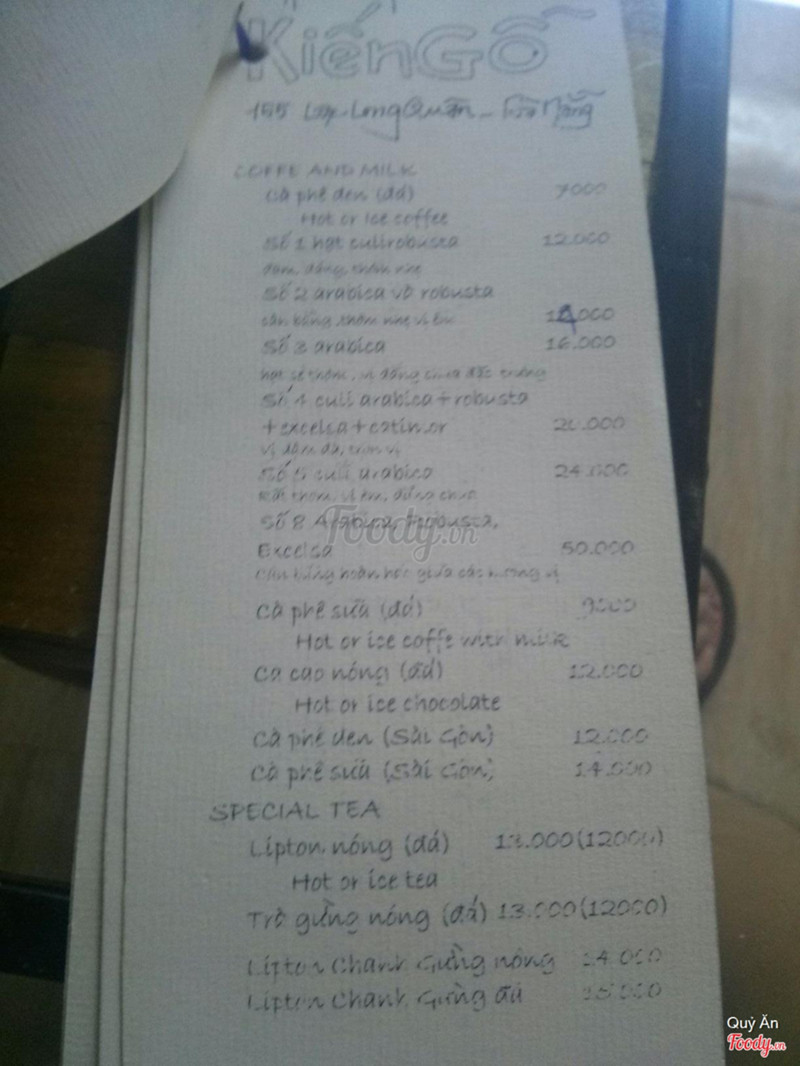 KiếnGỗ
155 LạcLongQuân - Đà Nẵng
COFFE AND MILK
Cà phê đen (đá) 7000
Hot or Ice coffee
Số 1 hạt culi robusta 12.000
đậm, đắng, thơm nhẹ
Số 2 arabica và robusta
cân bằng, thơm nhẹ vị êm 14.000
Số 3 arabica 16.000
hạt sẻ thơm, vị đắng chua đặc trưng
Số 4 culi arabica + robusta
+ excelsa + catimor 20.000
Vị đậm đà, tròn vị
Số 5 culi arabica 24.000
Rất thơm, vị êm, đắng chua
Số 8 Arabica, Robusta,
Excelsa 50.000
Cân bằng hoàn hảo giữa các hương vị
Foody.vn
Cà phê sữa (đá) 9000
Hot or ice coffe with milk
Ca cao nóng (đá) 12.000
Hot or ice chocolate
Cà phê đen (Sài Gòn) 12.000
Cà phê sữa (Sài Gòn) 14.000
SPECIAL TEA
Lipton nóng (đá) 13.000(12000)
Hot or ice tea
Trà gừng nóng (đá) 13.000(12000)
Lipton Chanh Gừng nóng 14.000
Lipton Chanh Gừng đá
Quỷ Ăn
Foody.vn